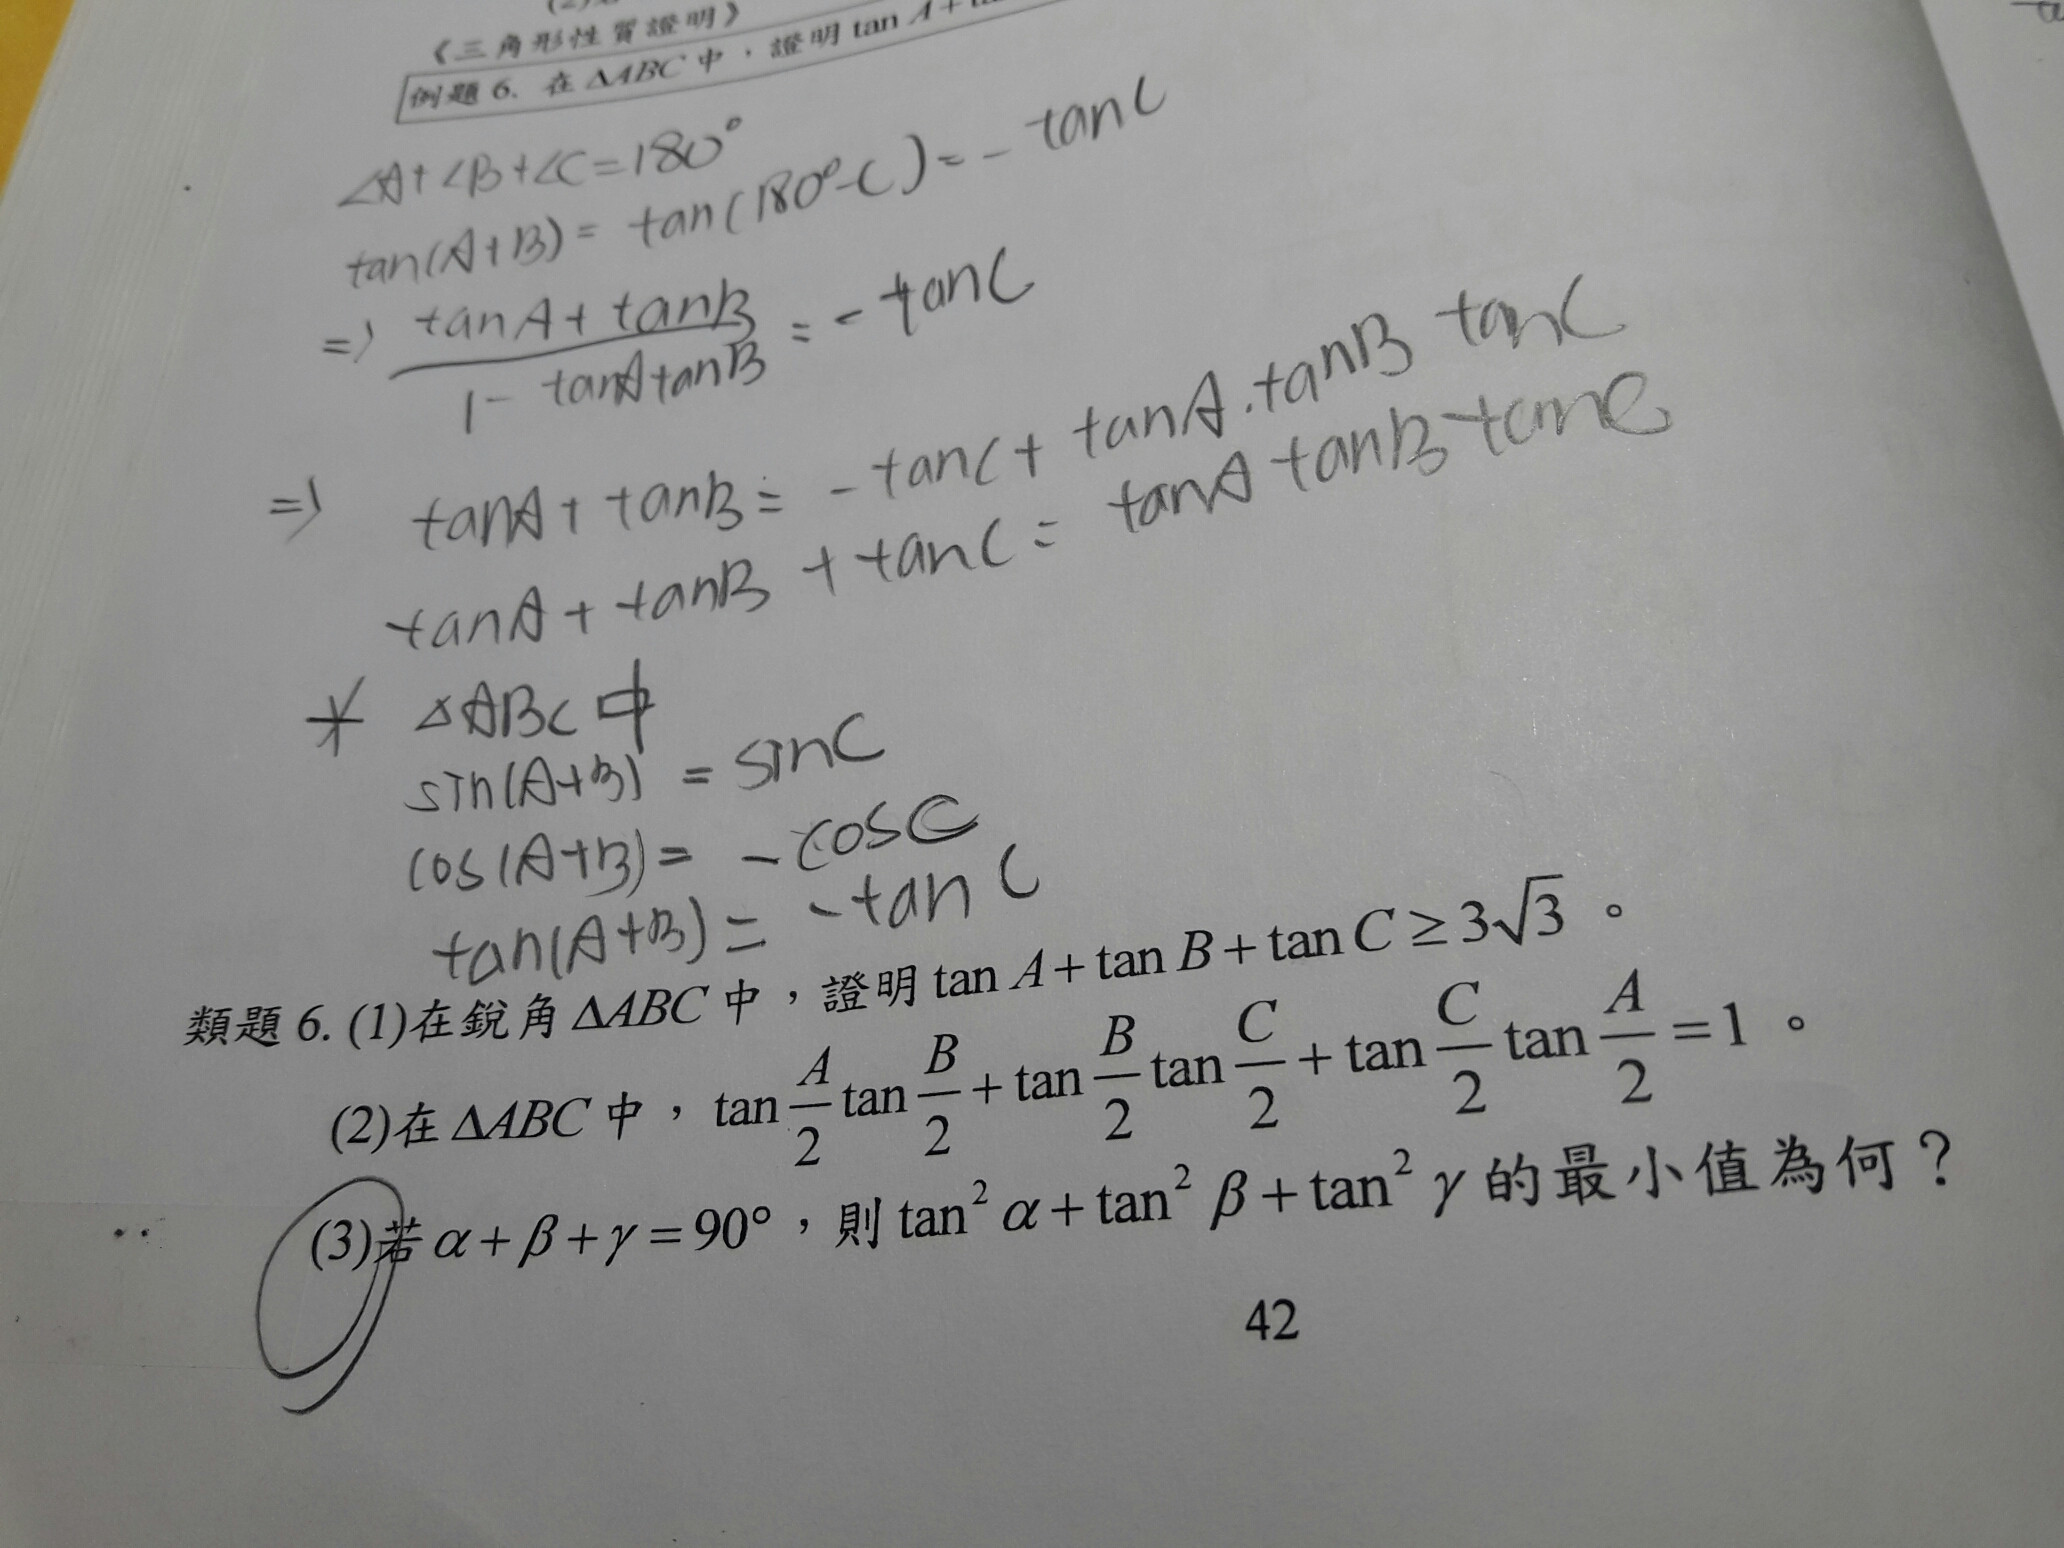 《三角形性質證明》
例題 6. 在 ΔABC 中，證明 tan A +
∠A+∠B+∠C=180°
tan(A+B) = tan(180°-C) = - tanC
=> (tanA + tanB)/(1 - tanA tanB) = - tanC
=> tanA + tanB = - tanC + tanA · tanB tanC
tanA + tanB + tanC = tanA tanB tanC
* ΔABC 中
sin(A+B) = sinC
cos(A+B) = -cosC
tan(A+B) = -tan C
類題 6. (1)在銳角 ΔABC 中，證明 tan A + tan B + tan C ≥ 3√3 。
(2)在 ΔABC 中，tan A/2 tan B/2 + tan B/2 tan C/2 + tan C/2 tan A/2 = 1 。
(3)若 α + β + γ = 90°，則 tan² α + tan² β + tan² γ 的最小值為何？
42